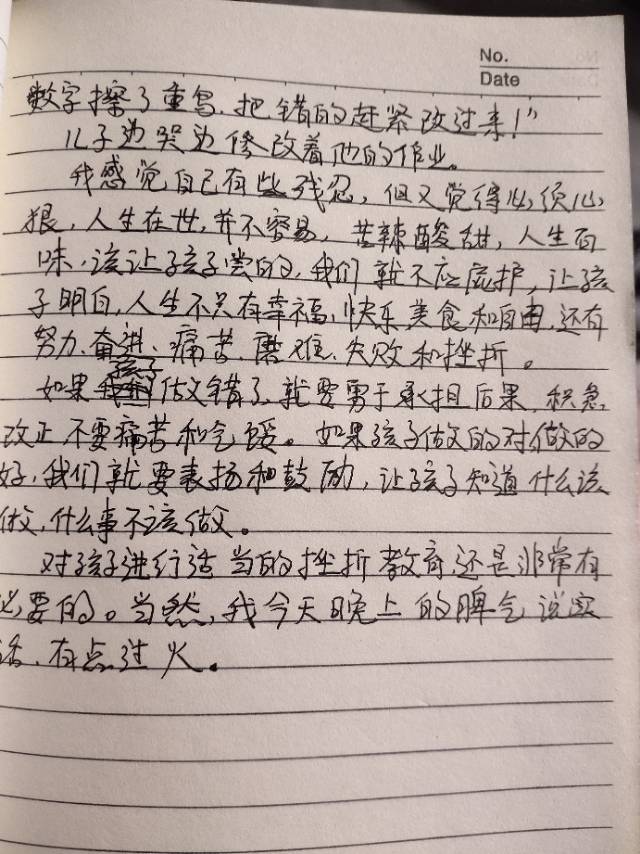 No.
Date
数字擦了重写.把错的赶紧改过来!”
儿子边哭边修改着他的作业。
我感觉自己有些残忍,但又觉得必须心
狠,人生在世,并不容易,苦辣酸甜,人生百
味,该让孩子尝的,我们就不应庇护,让孩
子明白,人生不只有幸福、快乐、美食和自由,还有
努力、奋进、痛苦、磨难、失败和挫折。
如果孩子做错了,就要勇于承担后果,积急
改正不要痛苦和气馁。如果孩子做的对做的
好,我们就要表扬和鼓励,让孩子知道什么该
做,什么事不该做。
对孩子进行适当的挫折教育还是非常有
必要的。当然,我今天晚上的脾气说实
话,有点过火。